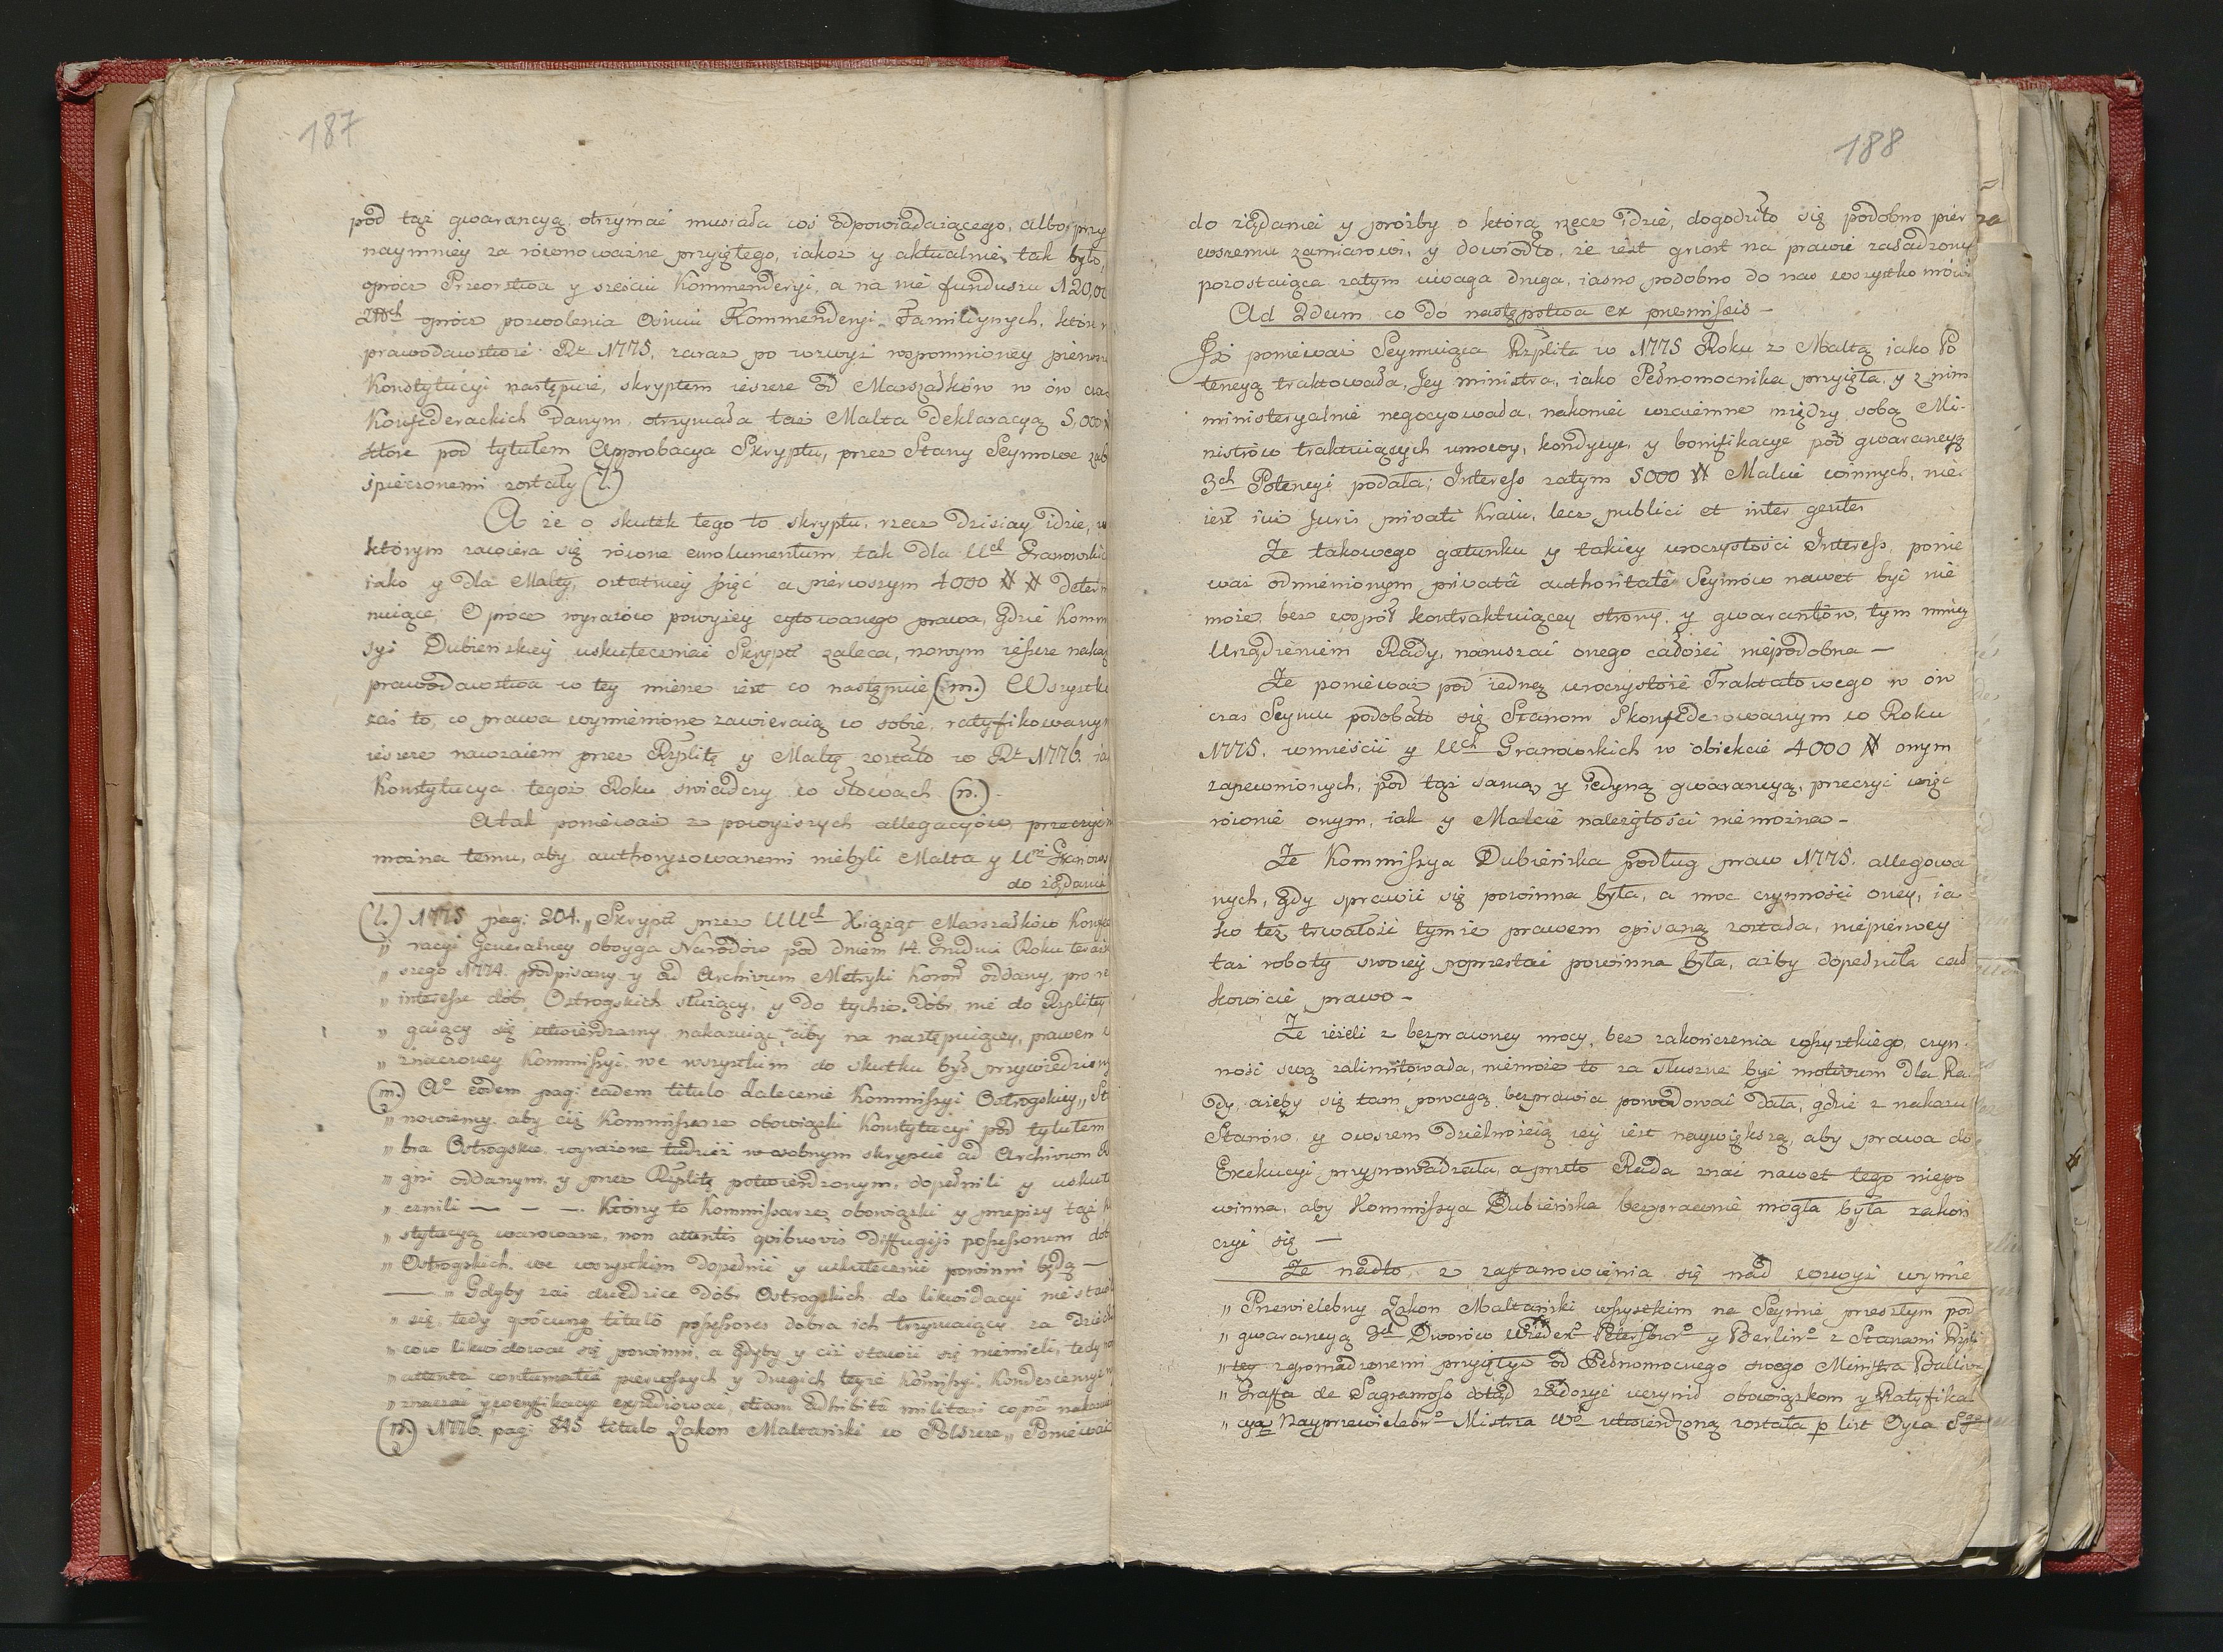 187
pod tąż gwarancyą, otrzymać musiała coś odpowiadaiącego, albo przy
naymniey za rownoważne przyiętego, iakoż y aktualnie tak było,
oprócz Przeorstwa y sześciu Kommenderyi, a na nie funduszu 120,00
oprócz pozwolenia Ośmiu Kommenderyi Familiynych, które
prawodawstwie Rt 1775, zaraz po wzwyż wspomnioney pierwsze
Konstytucyi następuie, skryptem ieszcze od Marszałków w ów czas
Konfederackich danym, otrzymała taż Malta deklaracyą 5,000
które pod tytułem Approbacya Skryptu, przez Stany Seymowe
śpieczonemi zostały (l.)
A że o skutek tego to skryptu, rzecz dzisiay idzie, w
którym zawiera się równe emolumentum tak dla UUch Granowskich
iako y dla Malty, ostatniey pięć a pierwszym 4000 # # determi
nuiące; Oprócz wyrazów powyżey cytowanego prawa, gdzie Kommi
syi Dubieńskiey uskuteczniać Skrypt zaleca, nowym ieszcze nakaz
prawodawstwa w tey mierze iest co następuie (m.) Wszystko
zaś to, co prawa wymienione zawieraią w sobie, ratyfikowanym
ieszcze nawzaiem przez Rzplitę y Maltę zostało w Rt 1776. ia
Konstytucya tegoż Roku świadczy w słowach (n.)
A tak ponieważ z powyższych allegacyiów, przeczyć nie
można temu, aby authoryzowanemi niebyli Malta y Uni Granows
do żądania
(l.) 1775 pagi: 204. „Skrypt przez UUch Xiążąt Marszałków Konfede
„ racyi Generalney oboyga Narodów pod dniem 14. Grudnia Roku teraźn
„ szego 1774. podpisany y ad Archivum Metryki Koron oddany, pro re
„ interesse dóbr Ostrogskich służący, y do tychże dóbr nie do Rzplitey
„ gaiący się utwierdzamy, nakazuiąc, aby na następuiącey, prawem
„ znaczoney Kommissyi, we wszystkim do skutku był przywiedziony
(m.) Ao eodem pagi: eadem titulo Zalecenie Kommissyi Ostrogskiey „ Sta
„ nowiemy, aby ciż Kommissarze obowiązki Konstytucyi pod tytułem
„ bra Ostrogskie, wyrażone tudzież w osobnym skrypcie ad Archivum
„ gni oddanym, y przez Rzplitę potwierdzonym, dopełnili y uskute
„ cznili — — —. Który to Kommissarze, obowiązki y przepisy tąż
„ stytucyą warowane, non attentis quibusvis diffugijs possessorum dób
„ Ostrogskich, we wszystkim dopełnić y uskutecznić powinni będą —
— „ Gdyby zaś dziedzice dóbr Ostrogskich do likwidacyi nie stawili
„ się, tedy quocunq titulô possessores dobra ich trzymaiący, za dziedzi
„ ców likwidować się powinni, a gdyby y ciż stawić się niemieli, tedy
„ attenta contumatia pierwszych y drugich teyże Komissyi, Kondescensye
„ znaczać y weryfikacye expediować, etiam adhibitâ militari copiâ nakazu
(n.) 1776. pagi: 845 titulo Zakon Maltański w Polszcze „ Ponieważ
188
do żądania y prośby o którą rzecz idzie, dogodziło się podobno pier
wszemu zamiarowi, y dowiodło, że iest grunt na prawie zasadzony
pozostaiąca zatym uwaga druga, iasno podobno do nas wszystko mówi
Ad 2dum co do następstwa ex premissis —
Iż ponieważ Seymuiąca Rzplita w 1775 Roku z Maltą iako Po
tencyą traktowała, Jey ministra, iako Pełnomocnika przyięła, y z nim
ministeryalnie negocyowała, nakoniec wzaiemne między sobą Mi-
nistrów traktuiących umowy, kondycye, y bonifikacye pod gwarancyą
3ch Potencyi podała; Interess zatym 5000 # Malcie winnych, nie
iest iuż Juris privati Kraiu, lecz publici et inter gentes
Że takowego gatunku y takiey uroczystości Interess, ponie
waż odmienionym privatâ authoritate Seymów nawet być nie
może, bez wspól kontraktuiącey strony, y gwarantów, tym mniey
Urządzeniem Rady, naruszać onego całości niepodobna —
Że ponieważ pod iedneż uroczystość Traktatowego w ów
czas Seymu podobało się Stanom Skonfederowanym w Roku
1775. umieścić y UUch Granowskich w obiekcie 4000 # onym
zapewnionych, pod tąż samą, y iedyną gwarancyą, przeczyć więc
równie onym, iak y Malcie należytości niemożna —
Że Kommissya Dubieńska podług praw 1775. allegowa
nych, gdy sprawić się powinna była, a moc czynności oney, ia
ko też trwałość tymże prawem opisaną została, niepierwey
taż roboty swoiey poprzestać powinna była, ażby dopełniła cał
kowicie prawo —
Że ieżeli z bezprawney mocy, bez zakończenia wszystkiego, czyn
ność swą zalimitowała, niemoże to za słuszne być motivum dla Ra
dy, ażeby się tam powagą bezprawia powodować dała, gdzie z nakazu
Stanów, y owszem dzielnością iey iest naywiększą, aby prawa do
Exekucyi przyprowadzała, a przeto Rada znać nawet tego niepo
winna, aby Kommissya Dubieńska bezprawnie mogła była zakoń
czyć się —
Że nadto, z zastanowienia się nad wzwyż wymie
„ Przewielebny Zakon Maltański wszystkim na Seymie przeszłym pod
„ gwarancyą 3ch Dworów Wiedeńo Petersburo y Berlino z Stanami Rzpli
„ tey zgromadzonemi przyiętym od Pełnomocnego swego Ministra Baliwa
„ Graffa de Sagramoso dotąd zadosyć uczynił obowiązkom y Ratyfika
„ cyą Nayprzewielebno Mistrza Wo utwierdzoną została p list Oyca Sgo